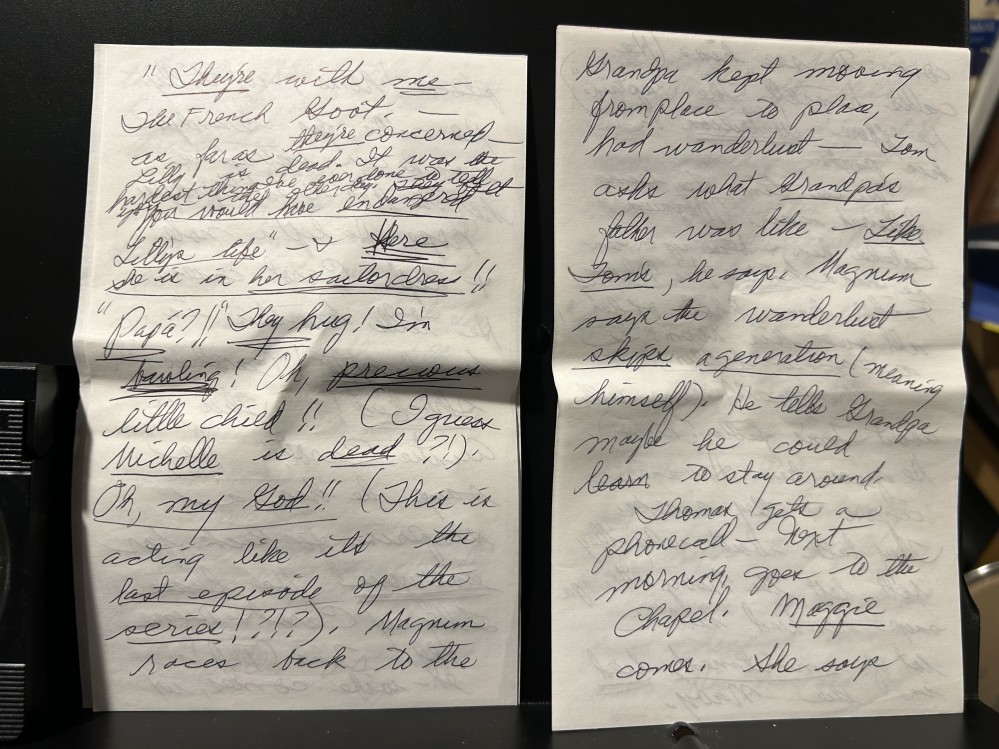 "They're with me —
The French Govt. —
as far as they're concerned —
Lilly is dead. It was the
hardest thing I've ever done to tell
you that the other day. They
you would have endangered
Lilly's life" — & Here
she is in her sailordress!!
"Papá?!!" They hug! I'm
bawling! Oh, precious
little child!! (I guess
Michelle is dead?!).
Oh, my God!! (This is
acting like its the
last episode of the
series!?!?). Magnum
races back to the
Grandpa kept moving
from place to place,
had wanderlust — Tom
asks what Grandpa's
father was like — Like
Tom's, he says. Magnum
says the wanderlust
skips a generation (meaning
himself). He tells Grandpa
maybe he could
learn to stay around.
Thomas gets a
phonecall — Next
morning, goes to the
Chapel. Maggie
comes. She says